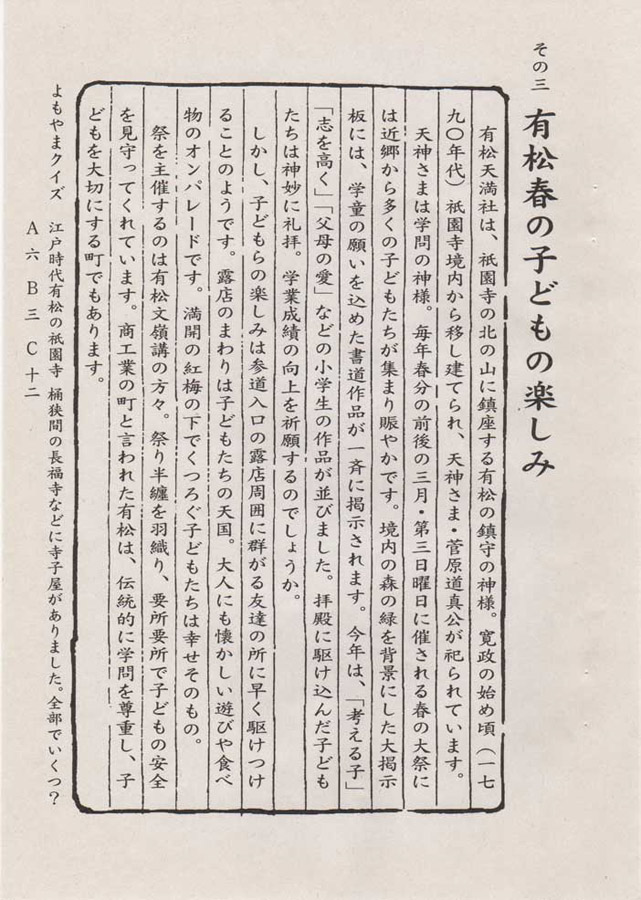 その三　有松春の子どもの楽しみ
有松天満社は、祇園寺の北の山に鎮座する有松の鎮守の神様。寛政の始め頃（一七
九〇年代）祇園寺境内から移し建てられ、天神さま・菅原道真公が祀られています。
天神さまは学問の神様。毎年春分の前後の三月・第三日曜日に催される春の大祭に
は近郷から多くの子どもたちが集まり賑やかです。境内の森の緑を背景にした大掲示
板には、学童の願いを込めた書道作品が一斉に掲示されます。今年は、「考える子」
「志を高く」「父母の愛」などの小学生の作品が並びました。拝殿に駆け込んだ子ども
たちは神妙に礼拝。学業成績の向上を祈願するのでしょうか。
しかし、子どもらの楽しみは参道入口の露店周囲に群がる友達の所に早く駆けつけ
ることのようです。露店のまわりは子どもたちの天国。大人にも懐かしい遊びや食べ
物のオンパレードです。満開の紅梅の下でくつろぐ子どもたちは幸せそのもの。
祭を主催するのは有松文嶺講の方々。祭り半纏を羽織り、要所要所で子どもの安全
を見守ってくれています。商工業の町と言われた有松は、伝統的に学問を尊重し、子
どもを大切にする町でもあります。
よもやまクイズ　江戸時代有松の祇園寺　桶狭間の長福寺などに寺子屋がありました。全部でいくつ？
A 六　B 三　C 十二